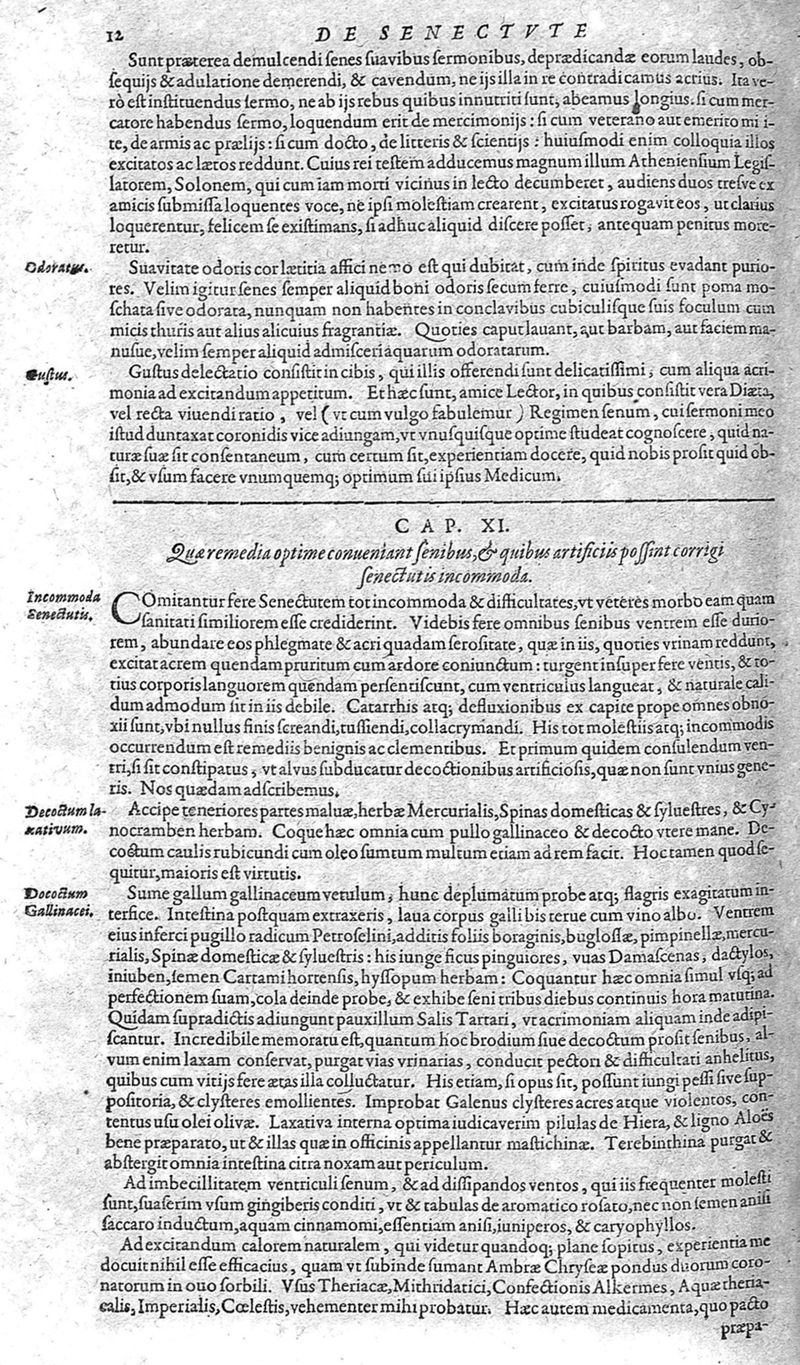 12 DE SENECTVTE
Sunt præterea demulcendi senes suavibus sermonibus, deprædicandæ eorum laudes, ob-
sequijs & adulatione demerendi, & cavendum, ne ijs illa in re contradicamus acrius. Ita ve-
rò est instituendus sermo, ne ab ijs rebus quibus innutriti sunt, abeamus longius. si cum mer-
catore habendus sermo, loquendum erit de mercimonijs : si cum veterano aut emerito mi i-
te, de armis ac prælijs : si cum docto, de litteris & scientijs : huiusmodi enim colloquia illos
excitatos ac lætos reddunt. Cuius rei testem adducemus magnum illum Atheniensium Legis-
latorem, Solonem, qui cum iam morti vicinus in lecto decumberet, audiens duos tresve ex
amicis submissa loquentes voce, ne ipsi molestiam crearent, excitatus rogavit eos, ut clarius
loquerentur, felicem se existimans, si adhuc aliquid discere posset, antequam penitus more-
retur.
Odoratus.
Suavitate odoris cor lætitia affici nemo est qui dubitat, cum inde spiritus evadant purio-
res. Velim igitur senes semper aliquid boni odoris secum ferre, cuiusmodi sunt poma mo-
schata sive odorata, nunquam non habentes in conclavibus cubiculisque suis foculum cum
micis thuris aut alius alicuius fragrantiæ. Quoties caput lauant, aut barbam, aut faciem ma-
nusue, velim semper aliquid admisceri aquarum odoratarum.
Gustus.
Gustus delectatio consistit in cibis, qui illis offerendi sunt delicatissimi, cum aliqua acri-
monia ad excitandum appetitum. Et hæc sunt, amice Lector, in quibus consistit vera Diæta,
vel recta viuendi ratio, vel ( vt cum vulgo fabulemur ) Regimen senum, cui sermoni meo
istud duntaxat coronidis vice adiungam, vt vnusquisque optime studeat cognoscere, quid na-
turæ suæ sit consentaneum, cum certum sit, experientiam docere, quid nobis prosit quid ob-
sit, & vsum facere vnumquemq; optimum sui ipsius Medicum.
CAP. XI.
Quæ remedia optime conueniant senibus, & quibus artificiis possint corrigi
senectutis incommoda.
Incommoda
Senectutis.
COmitantur fere Senectutem tot incommoda & difficultates, vt veteres morbo eam quam
sanitati similiorem esse crediderint. Videbis fere omnibus senibus ventrem esse durio-
rem, abundare eos phlegmate & acri quadam serositate, quæ in iis, quoties vrinam reddunt,
excitat acrem quendam pruritum cum ardore coniunctum : turgent insuper fere ventis, & to-
tius corporis languorem quendam persentiscunt, cum ventriculus langueat, & naturale cali-
dum admodum sit in iis debile. Catarrhis atq; defluxionibus ex capite prope omnes obno-
xii sunt, vbi nullus finis screandi, tussiendi, collacrymandi. His tot molestiis atq; incommodis
occurrendum est remediis benignis ac clementibus. Et primum quidem consulendum ven-
tri, si sit constipatus, vt alvus subducatur decoctionibus artificiosis, quæ non sunt vnius gene-
ris. Nos quædam adscribemus.
Decoctum la-
xativum.
Accipe teneriores partes maluæ, herbæ Mercurialis, Spinas domesticas & syluestres, & Cy-
nocramben herbam. Coque hæc omnia cum pullo gallinaceo & decocto vtere mane. De-
coctum caulis rubicundi cum oleo sumtum multum etiam ad rem facit. Hoc tamen quod se-
quitur, maioris est virtutis.
Dococtum
Gallinacei.
Sume gallum gallinaceum vetulum, hunc deplumatum probe atq; flagris exagitatum in-
terfice. Intestina postquam extraxeris, laua corpus galli bis terue cum vino albo. Ventrem
eius inferci pugillo radicum Petroselini, additis foliis boraginis, buglossæ, pimpinellæ, mercu-
rialis, Spinæ domesticæ & syluestris : his iunge ficus pinguiores, vuas Damascenas, dactylos,
iniuben, semen Cartami hortensis, hyssopum herbam : Coquantur hæc omnia simul vsq; ad
perfectionem suam, cola deinde probe, & exhibe seni tribus diebus continuis hora matutina.
Quidam supradictis adiungunt pauxillum Salis Tartari, vt acrimoniam aliquam inde adipi-
scantur. Incredibile memoratu est, quantum hoc brodium siue decoctum prosit senibus, al-
vum enim laxam conservat, purgat vias vrinarias, conducit pectori & difficultati anhelitus,
quibus cum vitijs fere ætas illa colluctatur. His etiam, si opus sit, possunt iungi pessi sive sup-
positoria, & clysteres emollientes. Improbat Galenus clysteres acres atque violentos, con-
tentus usu olei olivæ. Laxativa interna optima iudicaverim pilulas de Hiera, & ligno Aloës
bene præparato, ut & illas quæ in officinis appellantur mastichinæ. Terebinthina purgat &
abstergit omnia intestina citra noxam aut periculum.
Ad imbecillitatem ventriculi senum, & ad dissipandos ventos, qui iis frequenter molesti
sunt, suaserim vsum gingiberis conditi, vt & tabulas de aromatico rosato, nec non semen anisi
saccaro inductum, aquam cinnamomi, essentiam anisi, iuniperos, & caryophyllos.
Ad excitandum calorem naturalem, qui videtur quandoq; plane sopitus, experientia me
docuit nihil esse efficacius, quam vt subinde sumant Ambræ Chryseæ pondus duorum coro-
natorum in ovo sorbili. Vsus Theriacæ, Mithridatici, Confectionis Alkermes, Aquæ theria-
calis, Imperialis, Cœlestis, vehementer mihi probatur. Hæc autem medicamenta, quo pacto
præpa-